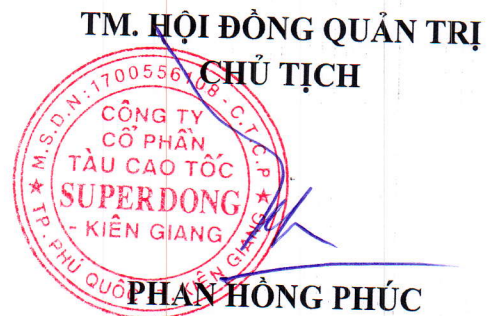 TM. HỘI ĐỒNG QUẢN TRỊ
CHỦ TỊCH
M.S.D.N:1700556108-C.T.C.P
CÔNG TY
CỔ PHẦN
TÀU CAO TỐC
SUPERDONG
- KIÊN GIANG
TP. PHÚ QUỐC - T. KIÊN GIANG
PHAN HỒNG PHÚC